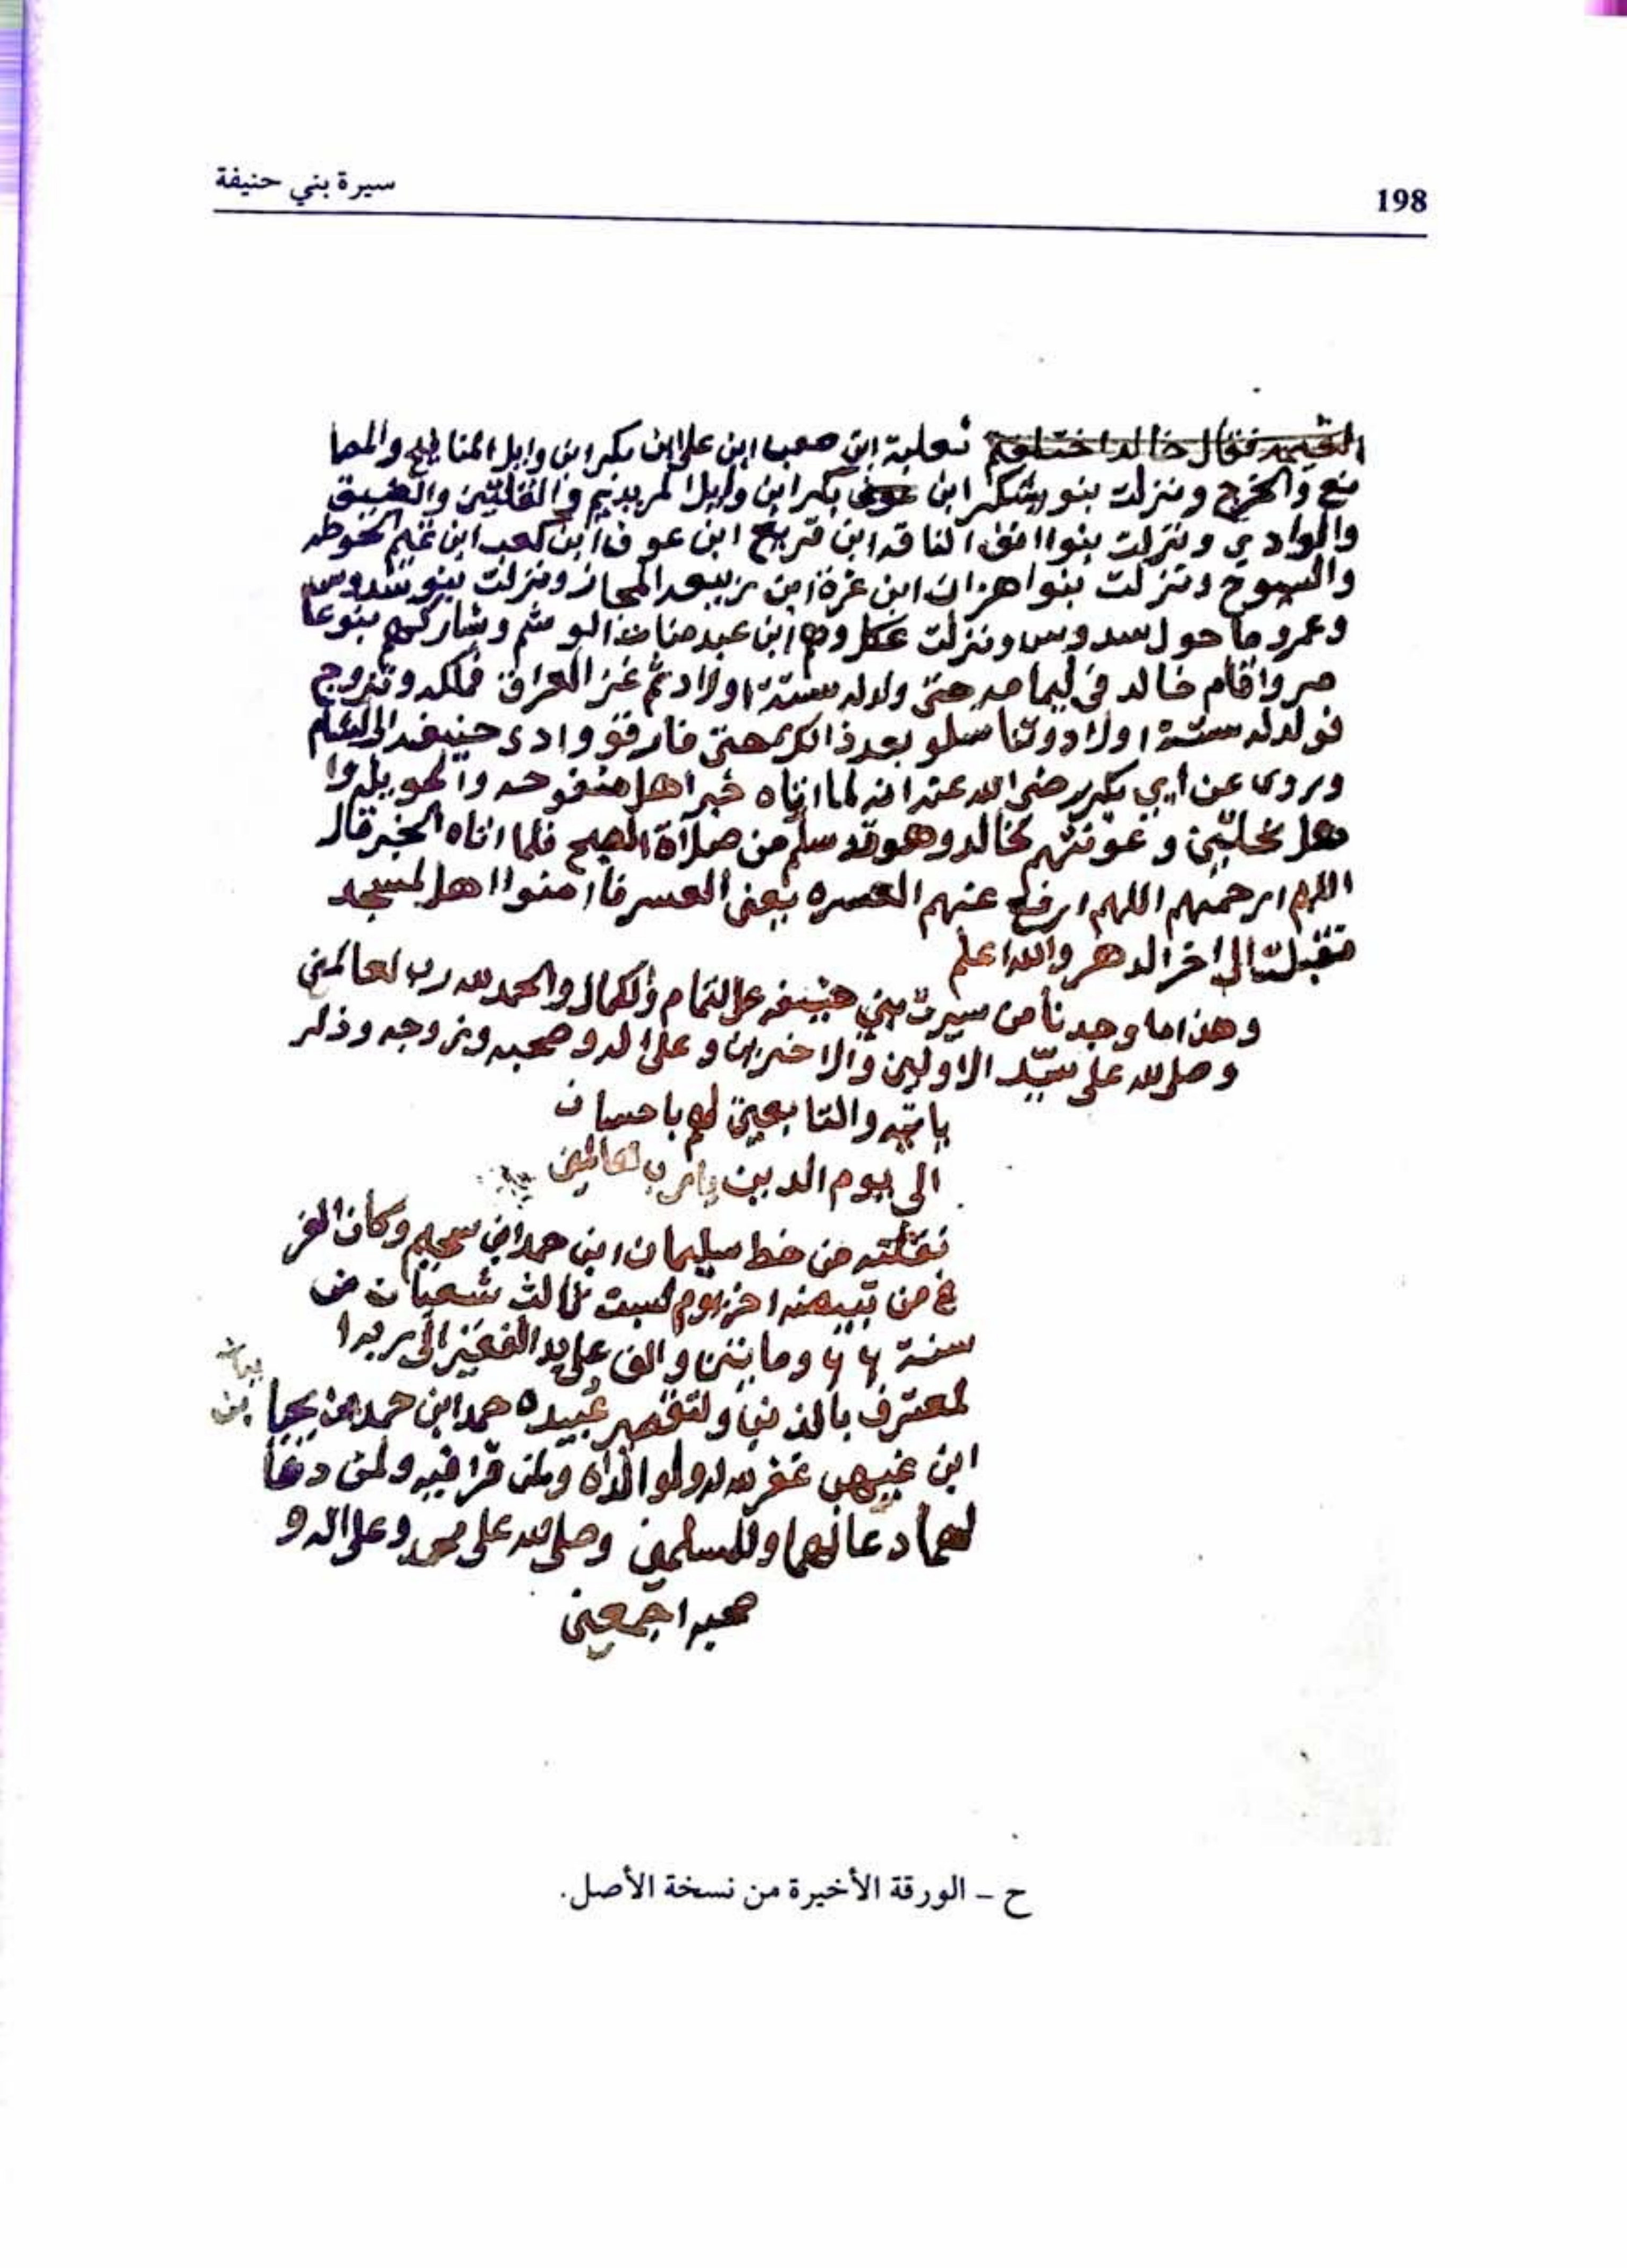 198
سيرة بني حنيفة
ثعلبة ابن صعب ابن علي ابن بكر ابن وايل المنا والمصا
نع والخرج ونزلت بنو يشكر ابن بكر ابن وايل
والوادي ونزلت بنوا الناقه ابن قريع ابن عوف ابن كعب ابن
والسيوح ونزلت بنوا هزان ابن المجاز ونزلت بنو سدوس
وعمرو ما حول سدوس ونزلت عكل وهم ابن عبد مناف الوشم وشاركهم بنو عا
مر واقام خالد في ليمامه حتى ولد له ستة اولاد ثم غز العراق فملكه وتزوج
فولد له ستة اولاد وتناسلو بعد ذالك حتى فارقو وادي حنيفه الى الشام
ويروى عن أبي بكر رضي الله عنه انه لما اتاه خبر اهل منفوحه وا
هل وهو قد سلم من صلاة الصبح فلما اتاه الخبر قال
اللهم ارحمهم اللهم ارفع عنهم العسره يعني العسر فا امنوا اهل لمسجد
الى اخر الدهر والله اعلم
وهذا ما وجدنا من سيرت بني حنيفه على التمام والكمال والحمد لله رب لعالمين
وصلى لله على سيد الاولين والاخرين وعلى اله وصحبه وزوجه وذر
ياته والتابعين لهم باحسان
الى يوم الدين يا رب لعالمين
نقلته من خط سليمان ابن حمد ابن سحيم وكان الفر
غ من اخر يوم لسبت ثالث شعبان من
سنة ٦٦ ومايتين والف على يد الفقير الى ربه ا
لمعترف بالذنب ولتقصير عبيده حمد ابن حمد بن يحيا بن
ابن غيهب غفر لله له ولوالداه ولمن قرا فيه ولمن دعا
لهما دعا لهما وللمسلمين وصلى لله على محمد وعلى اله و
صحبه اجمعين
ح - الورقة الأخيرة من نسخة الأصل.